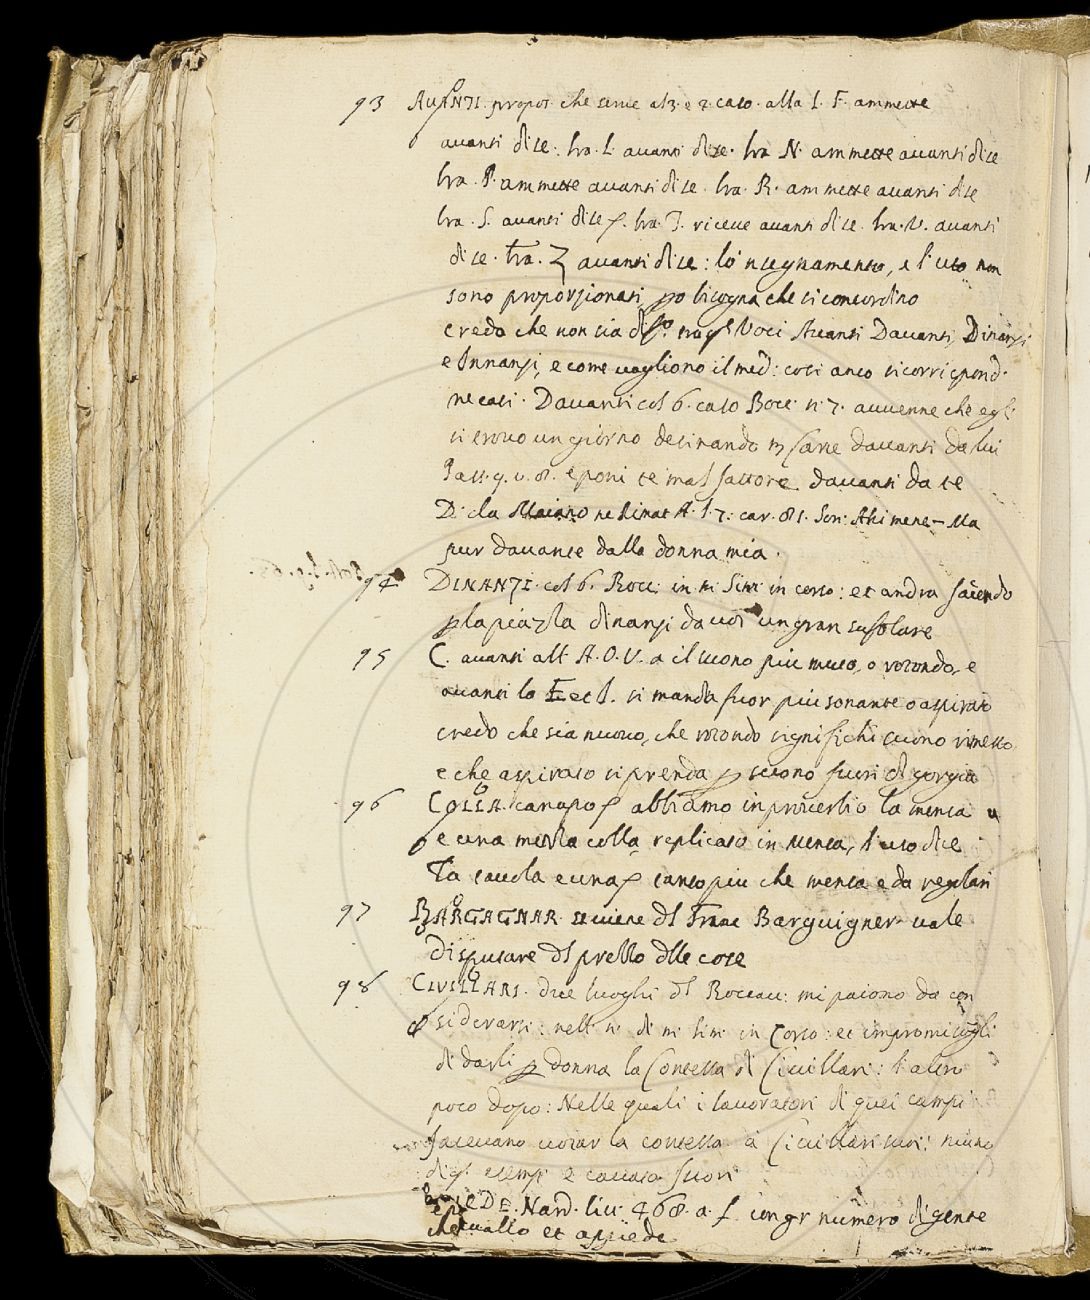 93 AVANTI. propos. che serve al 3. e 2 caso. alla L. F. ammette
avanti di se. tra. L. avanti di se. tra N. ammette avanti di se
tra. P. ammette avanti di se. tra. R. ammette avanti di se
tra. S. avanti di se tra. T. riceve avanti di se. tra. V. avanti
di se. tra. Z avanti di se: lo 'nsegnamento, e l'uso non
sono proporzionati, bisogna che si concordino
credo che non sia voci Avanti Davanti, Dinanzi
e Innanzi, e come vagliono il med: cosi anco si corrispond.
ne casi. Davanti col 6. caso Bocc. n. 7. avvenne che egli
si trovo un giorno desinando davanti da lui
Pass. 9. v. 8. e poni te mal fattore davanti da te
D. da Maiano ne car. 81. Son. Ahi mene Ma
pur davante dalla donna mia.
94 DINANZI. col 6. Bocc. in in corso: et andra faciendo
p la piazza dinanzi da voi un gran sufolare
95 C. avanti all A. O. V. a il suono piu muto, o rotondo, e
avanti lo E et I. si manda fuor piu sonante o aspirato
credo che sia nuovo, che rotondo significhi suono rimesso,
e che aspirato si prenda p suono fuori di gorgia
96 COLLA. canapo abbiamo in proverbio la mensa
e una mezza colla replicato in Mensa, l'uso dice
La tavola e una tanto piu che mensa e da regolari
97 BARGAGNAR. se viene dl Franc Barguigner vale
disputare dl prezzo dlle cose
98 CIVILLARI. due luoghi dl Boccac: mi paiono da con
siderarsi: nell n. di in Corso: et impromisegli
di darli p donna la Contessa di Civillari: l'altro
poco dopo: Nelle quali i lavoratori di quei campi
facevano votar la contessa a Civillari
esempi e cavato fuori
Nard. liv. 468. a. f. un gr numero di gente
cavallo et appiede